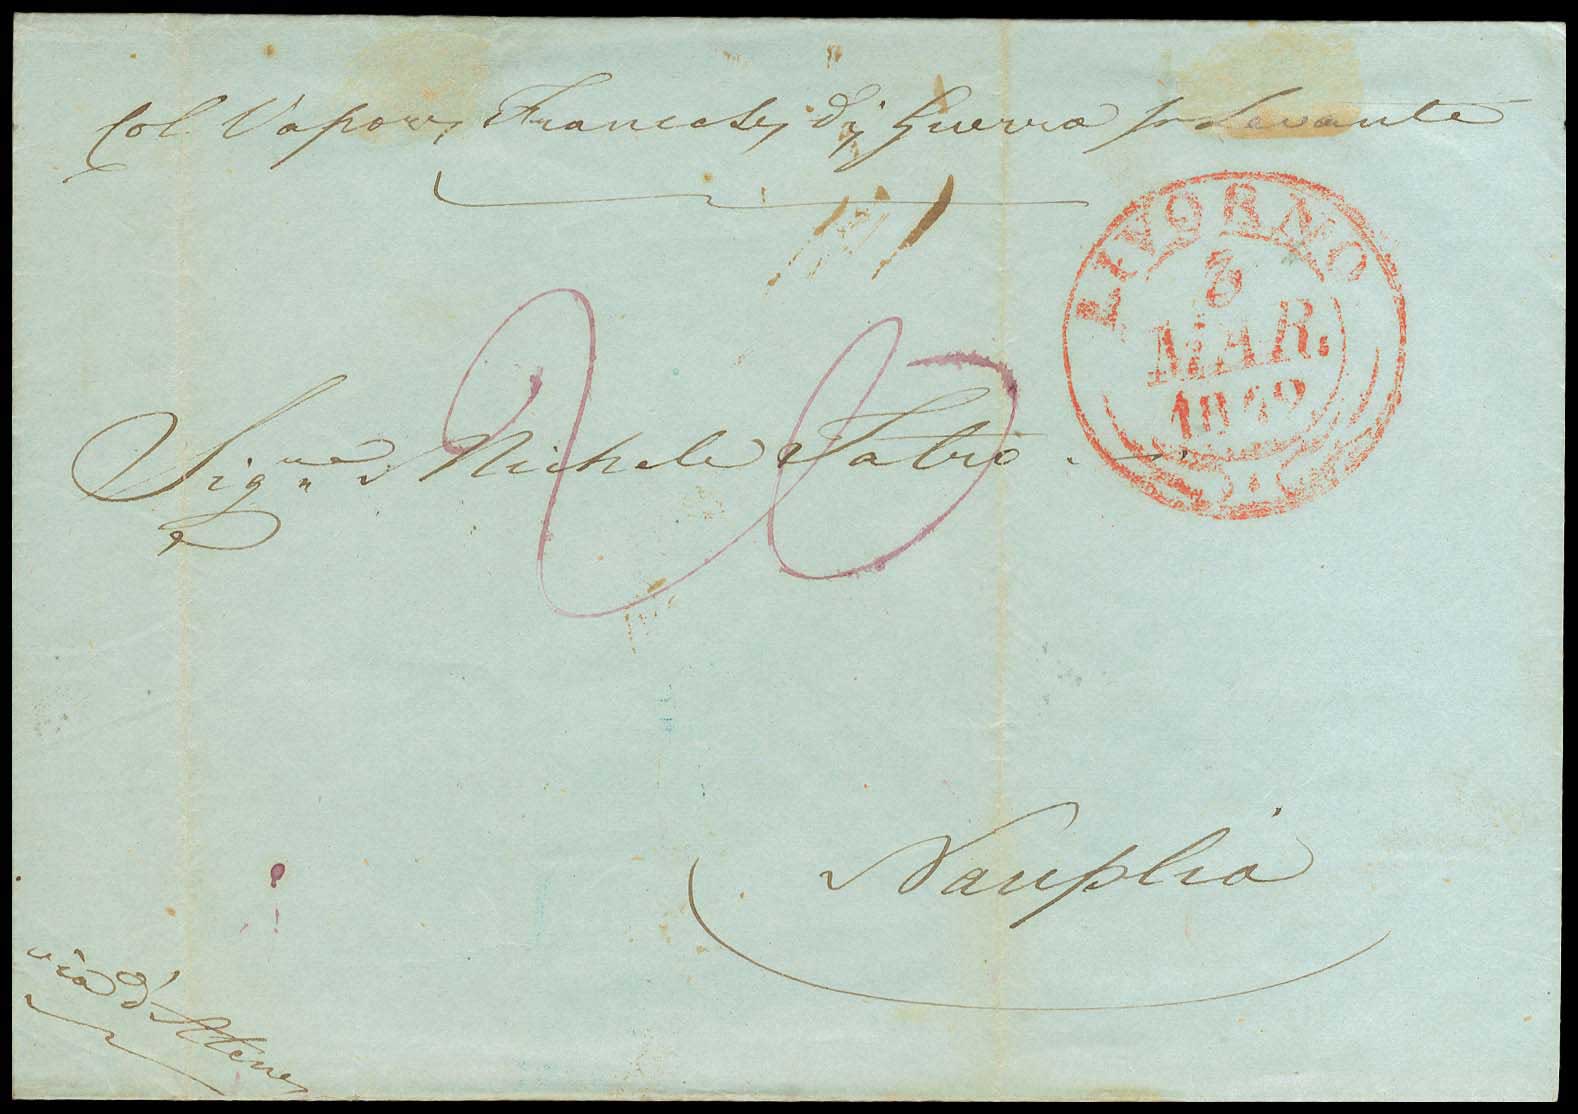 Col Vapore Francese di Guerra pr Levante
LIVORNO
3
MAR.
1849
20
Sigre Michele Iatrò
Nauplia
via d'Atene